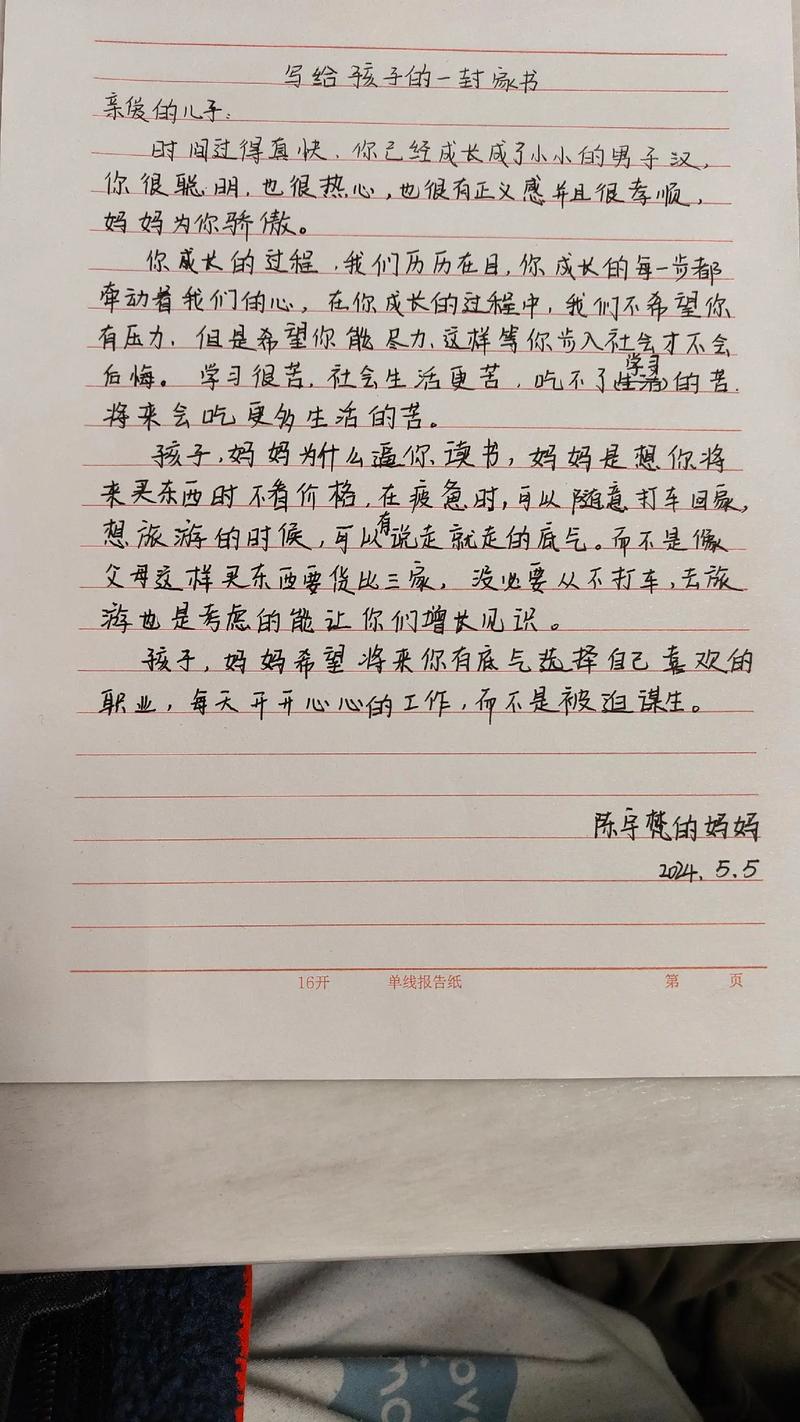 写给孩子的一封家书
亲爱的儿子:
时间过得真快,你已经成长成了小小的男子汉,
你很聪明,也很热心,也很有正义感并且很孝顺,
妈妈为你骄傲。
你成长的过程,我们历历在目,你成长的每一步都
牵动着我们的心,在你成长的过程中,我们不希望你
有压力,但是希望你能尽力,这样等你步入社会才不会
后悔。学习很苦,社会生活更苦,吃不了学习的苦,
将来会吃更多生活的苦。
孩子,妈妈为什么逼你读书,妈妈是想你将
来买东西时不看价格,在疲惫时,可以随意打车回家,
想旅游的时候,可以有说走就走的底气。而不是像
父母这样买东西要货比三家,没必要从不打车,去旅
游也是考虑的能让你们增长见识。
孩子,妈妈希望将来你有底气选择自己喜欢的
职业,每天开开心心的工作,而不是被迫谋生。
陈宇梵的妈妈
2024.5.5
16开 单线报告纸 第 页